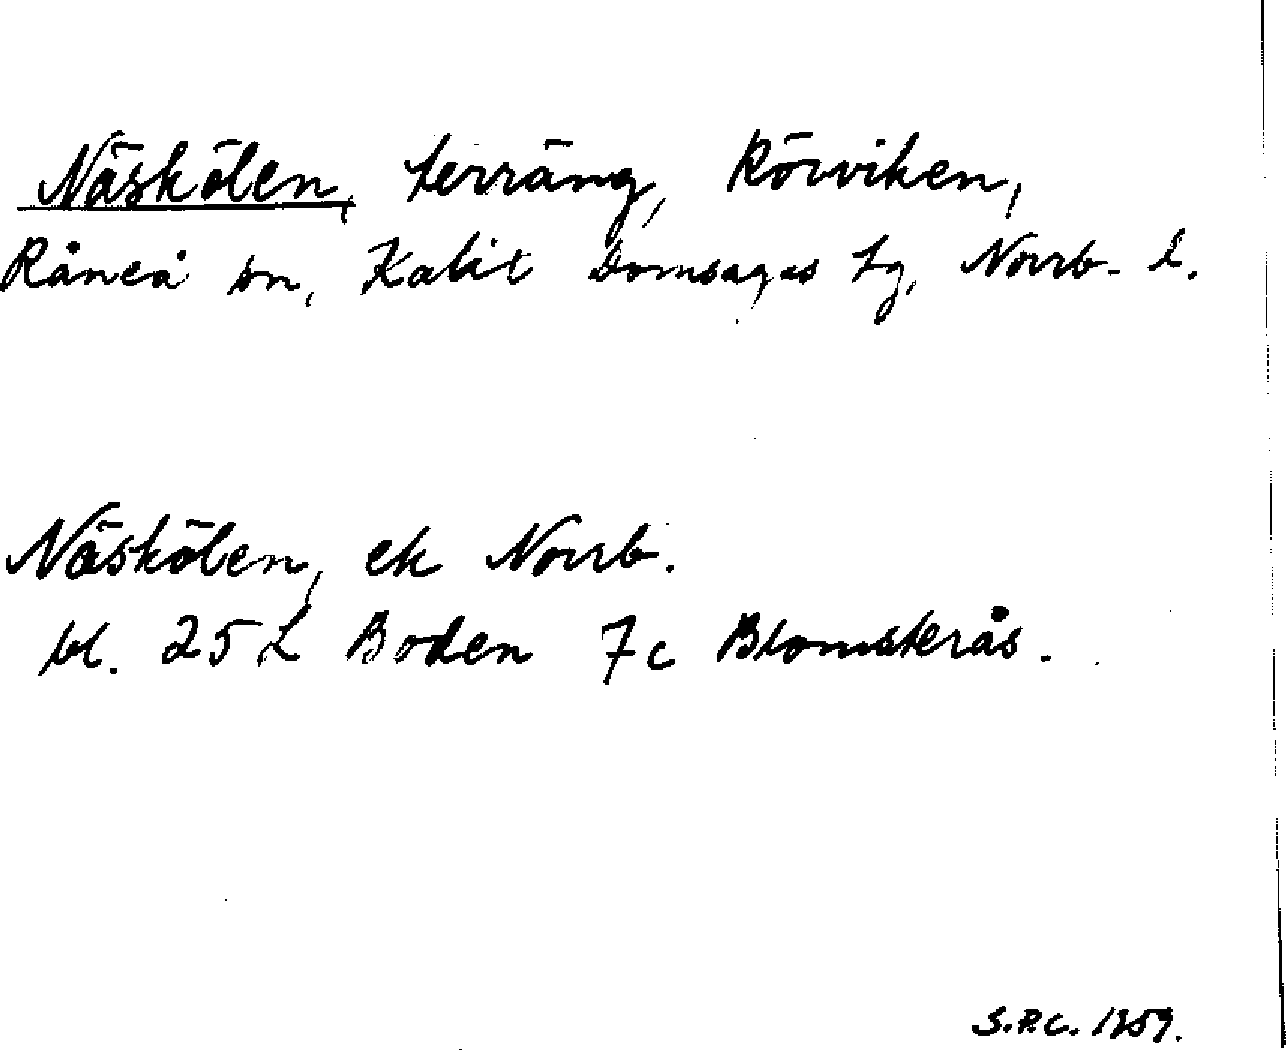 Näskölen, terräng, Rörviken,
Råneå sn, Kalix Domsagas tg, Norrb. l.
Näskölen, ek Norrb.
bl. 25 L Boden 7c Blomsterås.
S.P.C. 1959.